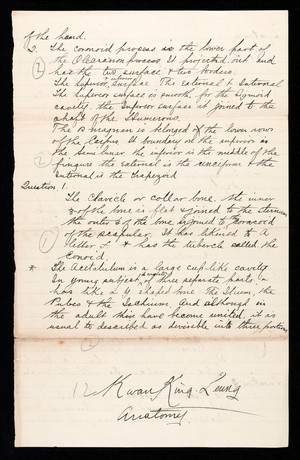 of the hand.
2. The coronoid process is the lower part of
the Olecranon process It projected out and
has the two surface & two borders.
The superior, inferior surface. The external & internal
The Superior surface is smooth for the Sigmoid
cavity the Inferior surface it joined to the
shaft of the Humerous.
(2) The Os magnum is belonged of the lower rows
of the Carpus It boundary on the superior is
the Semi lunar, the inferior is the middle of the
fingure the external is the unciform & the
internal is the Trapezoid
Question 1.
The Clavicle or collar bone. the inner
of the bone is flat & joined to the sternum
the outer of the bone is joined to
of the scapular. It has likened to A
letter f. & has the tubercle called the
(1) Conoid.
* The Acetabulum is a large cup-like cavity
In young subject, of three separate parts &
has like a Y shaped bone the Ilium, the
Pubes & the Ischium. And although in
the adult this have become united, it is
usual to described as devisible into three portions
12 Kwan King Leung
Anatomy